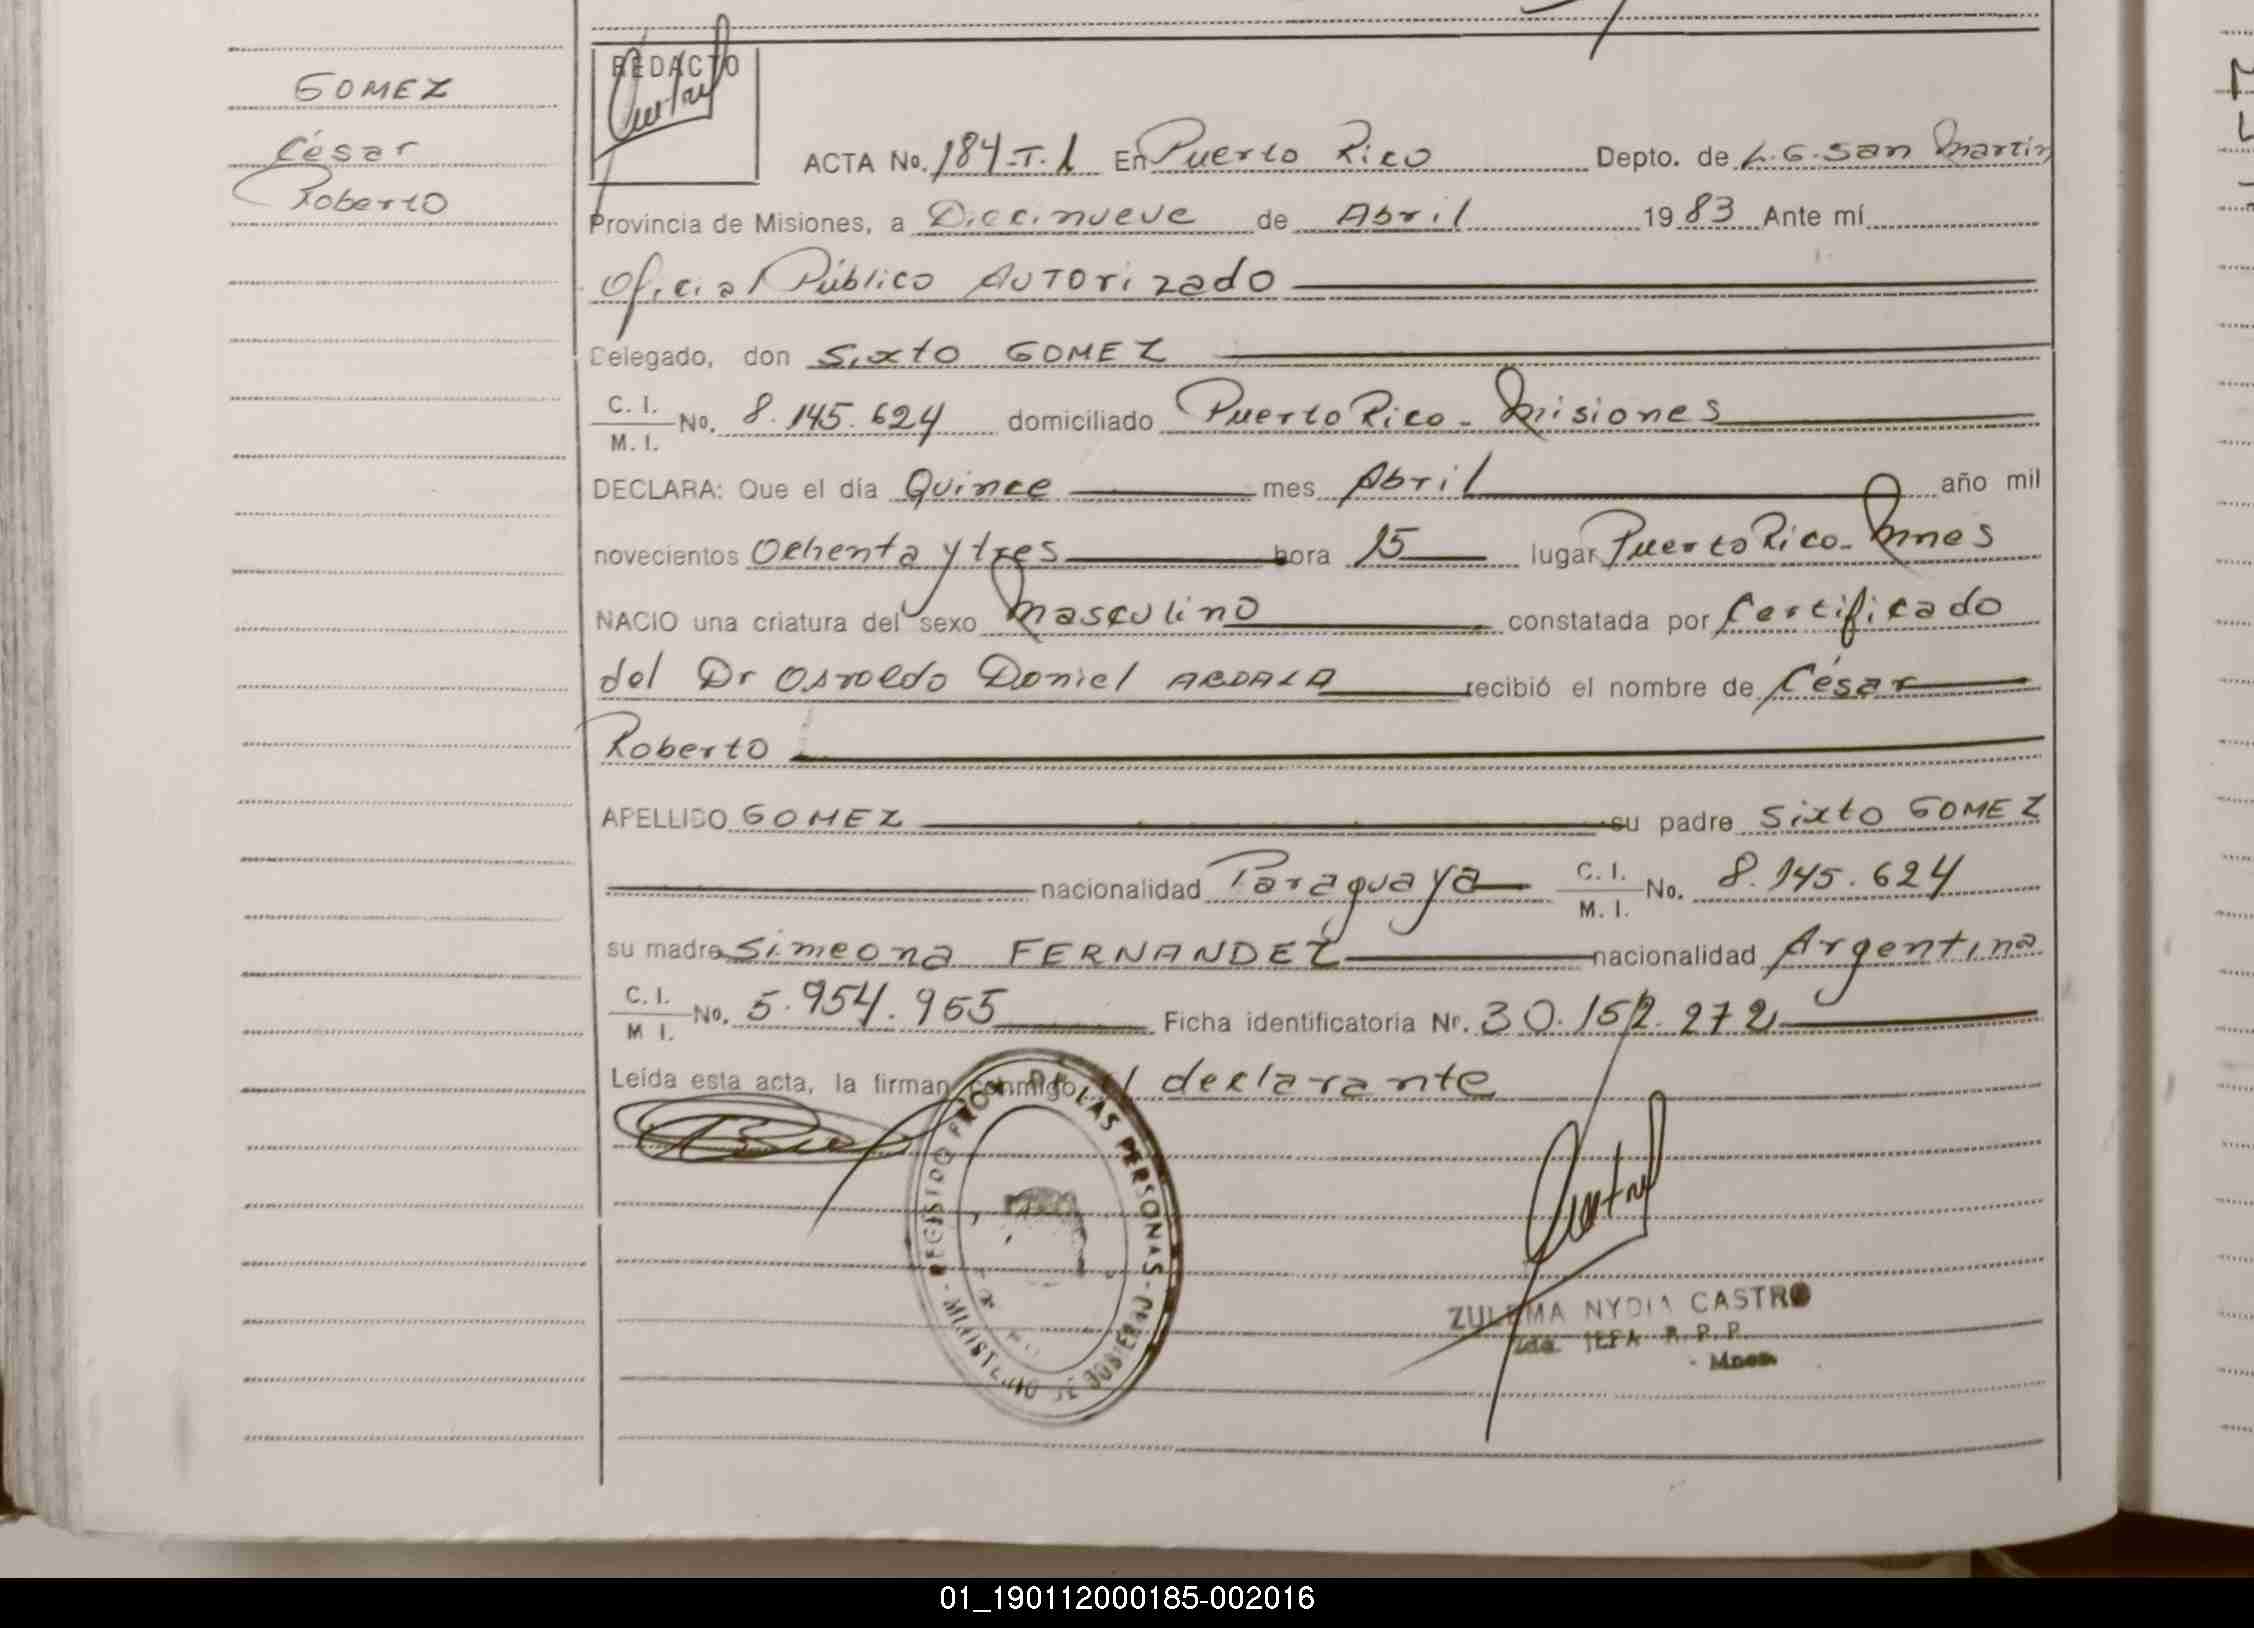 GOMEZ
César
Roberto
REDACTO
ACTA No. 184-T.1 En Puerto Rico Depto. de L.G. San Martin
Provincia de Misiones, a Diecinueve de Abril 1983 Ante mí
Oficial Público Autorizado
Delegado, don Sixto GOMEZ
C. I. / M. I. No. 8.145.624 domiciliado Puerto Rico - Misiones
DECLARA: Que el día Quince mes Abril año mil
novecientos Ochenta y tres hora 15 lugar Puerto Rico - Mnes
NACIO una criatura del sexo masculino constatada por Certificado
del Dr Osvaldo Daniel ABDALA recibió el nombre de César
Roberto
APELLIDO GOMEZ su padre Sixto GOMEZ
nacionalidad Paraguaya C. I. / M. I. No. 8.145.624
su madre Simeona FERNANDEZ nacionalidad Argentina
C. I. / M I. No. 5.954.965 Ficha identificatoria Nr. 30.152.272
Leída esta acta, la firman conmigo el declarante
REGISTRO PROV. DE LAS PERSONAS - MINISTERIO DE GOBIERNO -
ZULEMA NYDIA CASTRO
2da. JEFA R. P. P.
- Mnes.
01_190112000185-002016